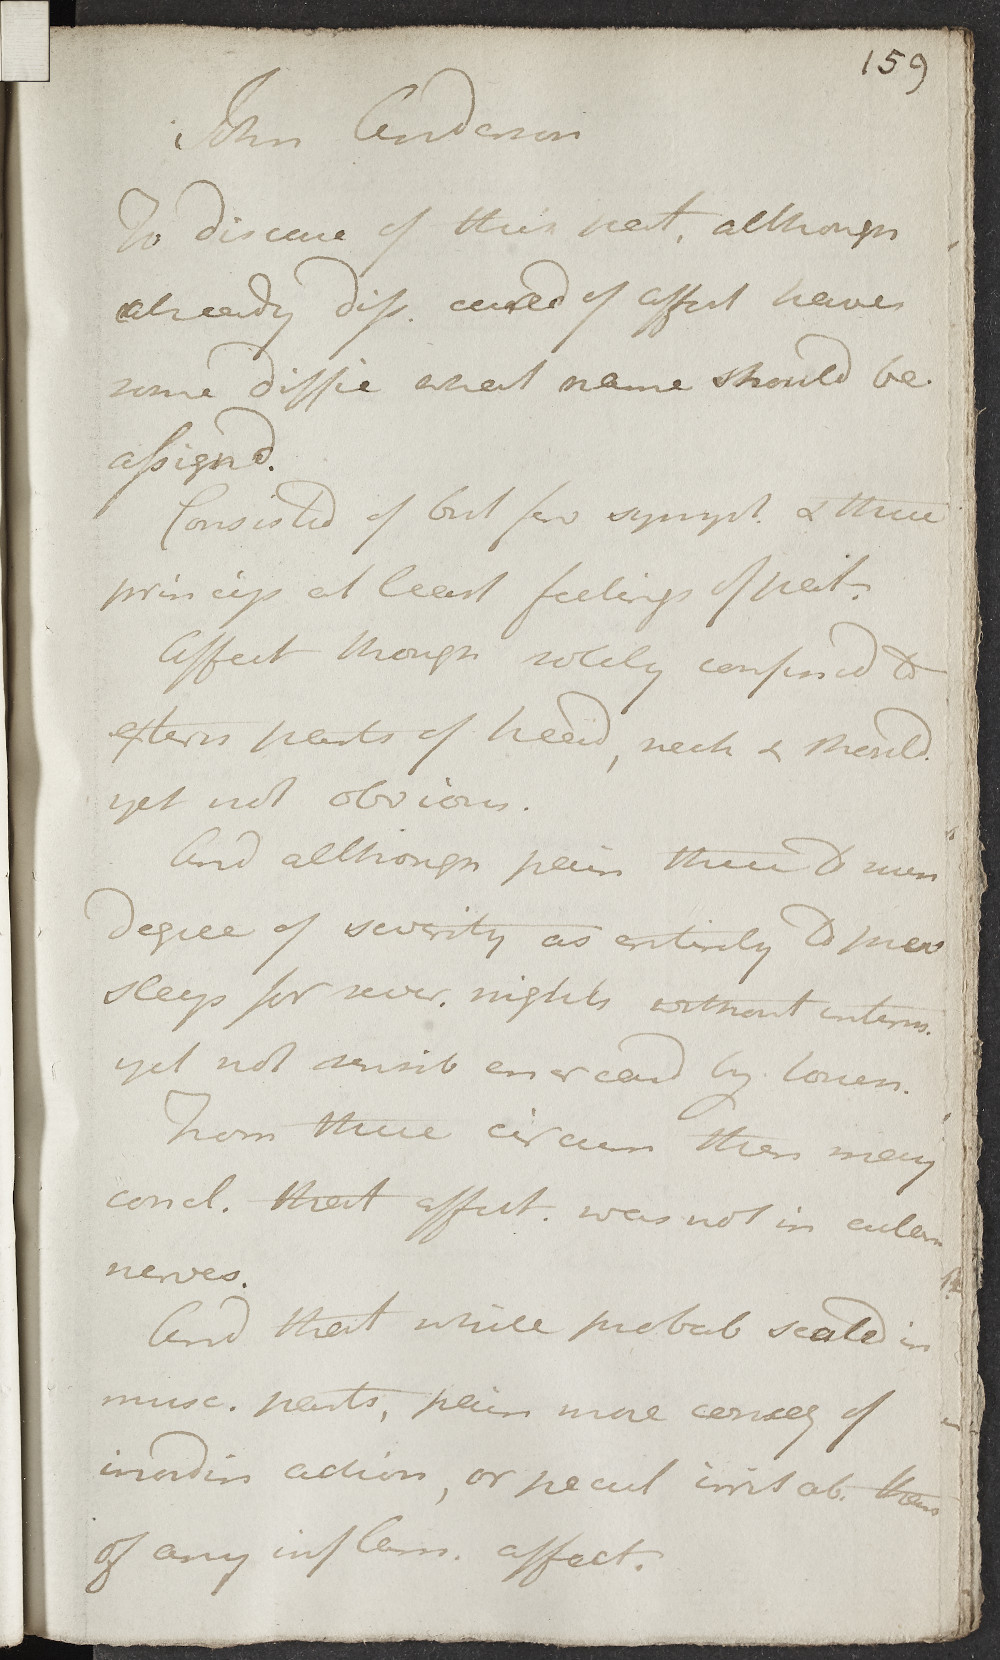 159
John Anderson
To disease of this pat. although
already dis. cured of affect have
some diffic what name should be
assignd.
Consisted of but few sympt. & these
princip at least feelings of pat.
Affect though solely confined to
extern parts of head, neck & should.
yet not obvious.
And although pain there to such
degree of severity as entirely to prev
sleep for sever. nights without interm.
yet not sensib encreasd by touch.
From these circum then may
concl. that affect. was not in cutan
nerves.
And that while probab seated in
musc. parts, pain more conseq of
inordin action, or pecul irritab. than
of any inflam. affect.